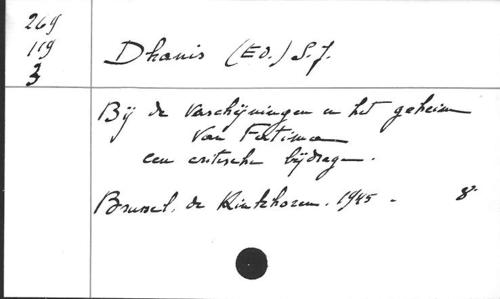 269
119
3
Dhanis (Ed.) S.J.
Bij de verschijningen en het geheim
van Fatima
een critische bijdrage.
Brussel. de Kinkhoren. 1945 - 8°